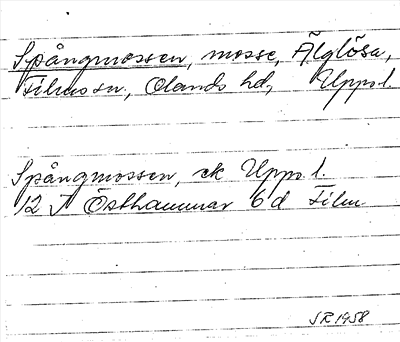 Spångmossen, mosse, Älglösa,
Films sn, Olands hd, Uppl.
Spångmossen, ek Uppl.
12 I Östhammar 6d Film
SR 1958